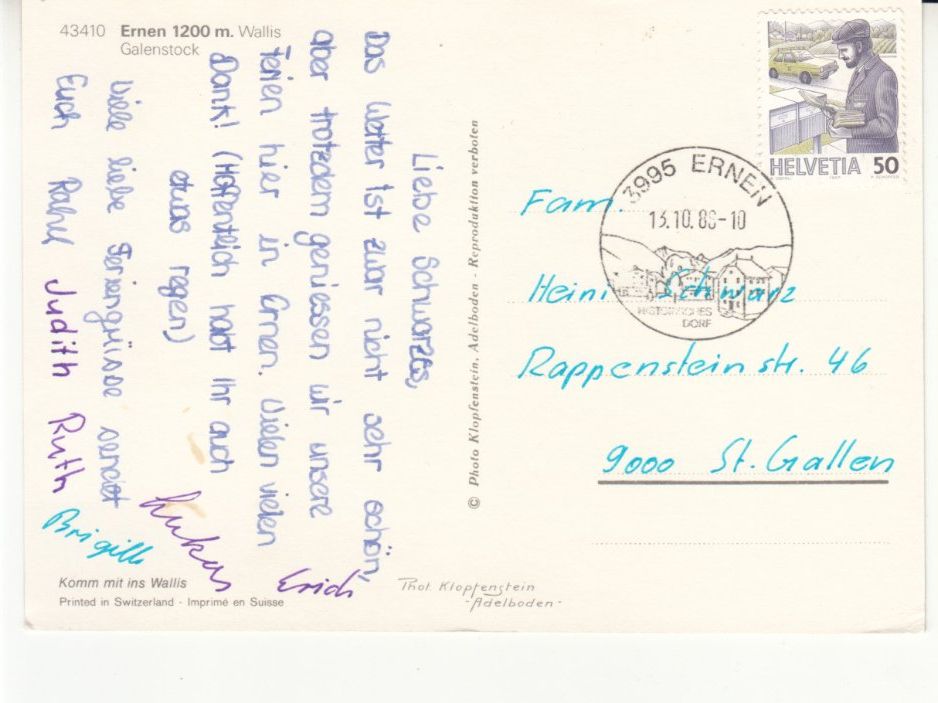 43410 Ernen 1200 m. Wallis
Galenstock
Liebe Schwarzes,
Das Wetter ist zwar nicht sehr schön,
aber trotzdem geniessen wir unsere
Ferien hier in Ernen. Vielen vielen
Dank! (Hoffentlich habt Ihr auch
etwas regen)
Viele liebe Feriengrüsse sendet
Euch Rahel Judith Ruth
Brigitte Lukas Erich
Komm mit ins Wallis
Printed in Switzerland · Imprimé en Suisse
© Photo Klopfenstein, Adelboden - Reproduktion verboten
Phot. Klopfenstein
-Adelboden-
HELVETIA 50
3995 ERNEN
13.10.88-10
HISTORISCHES
DORF
Fam.
Heini Schwarz
Rappensteinstr. 46
9000 St. Gallen